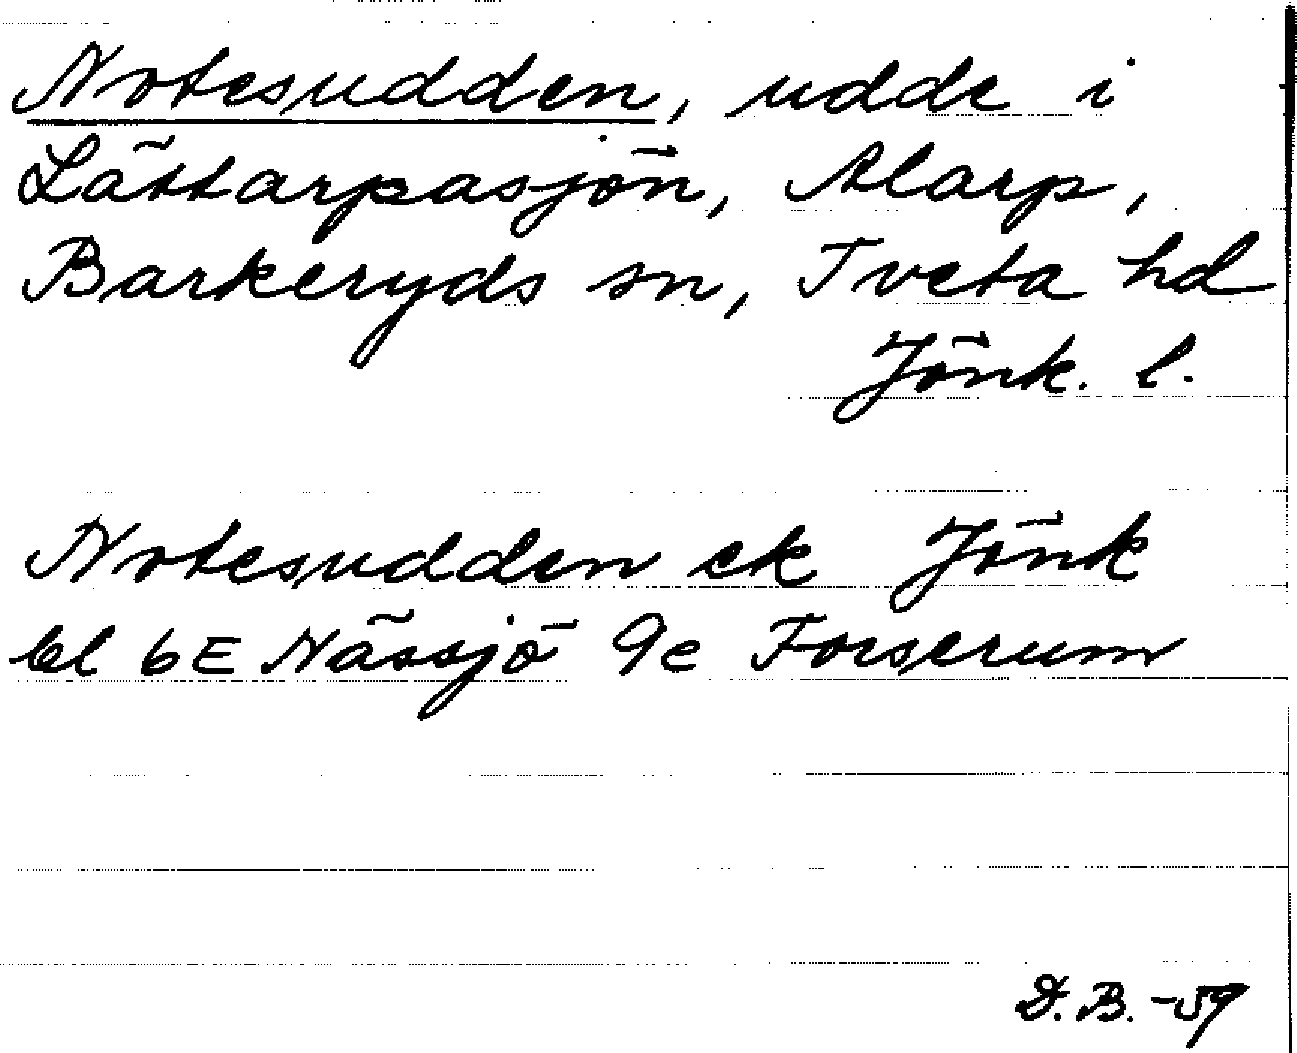 Notesudden, udde i
Lättarpasjön, Alarp,
Barkeryds sn, Tveta hd
Jönk. l.
Notesudden ek Jönk
bl 6E Nässjö 9e Forserum
D.B. -59